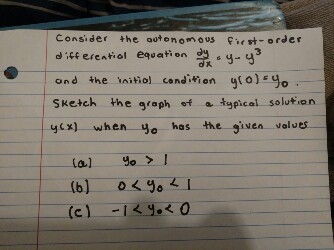 Consider the autonomous first-order
differential equation dy/dx = y - y³
and the initial condition y(0) = y₀.
Sketch the graph of a typical solution
y(x) when y₀ has the given values
(a) y₀ > 1
(b) 0 < y₀ < 1
(c) -1 < y₀ < 0